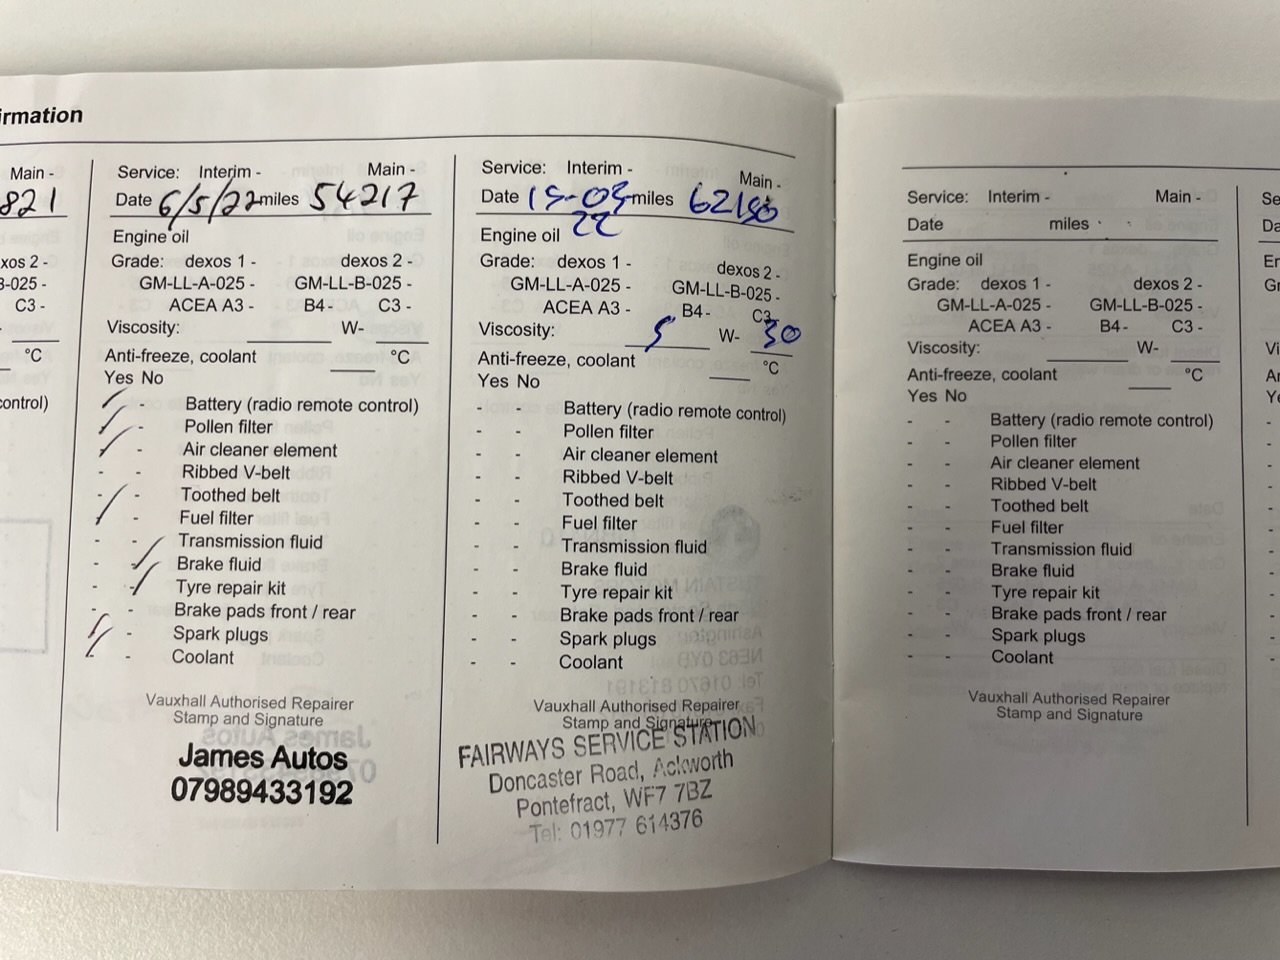 irmation
Main -
821
xos 2 -
B-025 -
C3 -
°C
control)
Service: Interim - Main -
Date 6/5/22 miles 54217
Engine oil
Grade: dexos 1 - dexos 2 -
GM-LL-A-025 - GM-LL-B-025 -
ACEA A3 - B4 - C3 -
Viscosity: W-
Anti-freeze, coolant °C
Yes No
- Battery (radio remote control)
- Pollen filter
- Air cleaner element
- - Ribbed V-belt
- Toothed belt
- Fuel filter
- - Transmission fluid
- Brake fluid
- Tyre repair kit
- - Brake pads front / rear
- Spark plugs
- Coolant
Vauxhall Authorised Repairer
Stamp and Signature
James Autos
07989433192
Service: Interim - Main -
Date miles
22
Engine oil
Grade: dexos 1 - dexos 2 -
GM-LL-A-025 - GM-LL-B-025 -
ACEA A3 - B4 - C3
Viscosity: 5 W- 30
Anti-freeze, coolant °C
Yes No
- - Battery (radio remote control)
- - Pollen filter
- - Air cleaner element
- - Ribbed V-belt
- - Toothed belt
- - Fuel filter
- - Transmission fluid
- - Brake fluid
- - Tyre repair kit
- - Brake pads front / rear
- - Spark plugs
- - Coolant
Vauxhall Authorised Repairer
Stamp and Signature
FAIRWAYS SERVICE STATION
Doncaster Road, Ackworth
Pontefract, WF7 7BZ
Tel: 01977 614376
Service: Interim - Main -
Date miles
Engine oil
Grade: dexos 1 - dexos 2 -
GM-LL-A-025 - GM-LL-B-025 -
ACEA A3 - B4 - C3 -
Viscosity: W-
Anti-freeze, coolant °C
Yes No
- - Battery (radio remote control)
- - Pollen filter
- - Air cleaner element
- - Ribbed V-belt
- - Toothed belt
- - Fuel filter
- - Transmission fluid
- - Brake fluid
- - Tyre repair kit
- - Brake pads front / rear
- - Spark plugs
- - Coolant
Vauxhall Authorised Repairer
Stamp and Signature
Se
Da
En
Gr
Vi
An
Ye